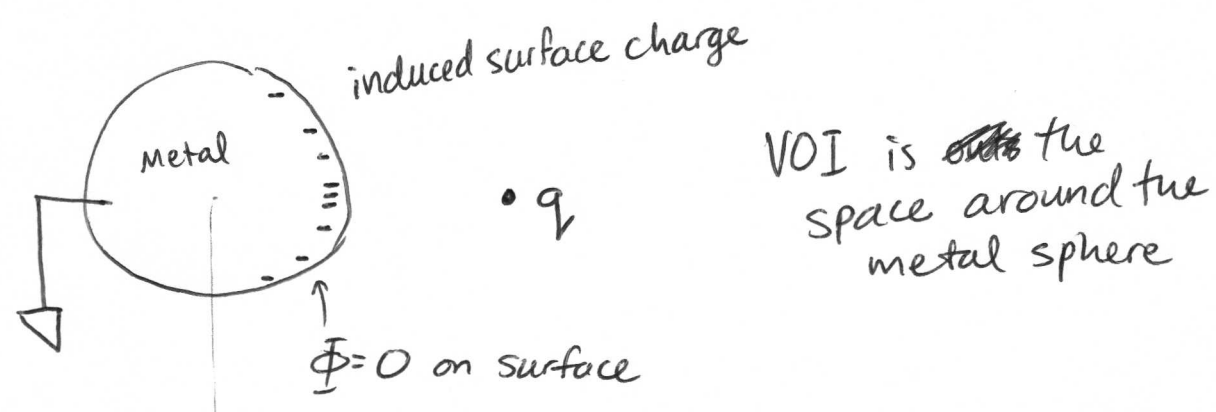 induced surface charge
Metal
q
VOI is the
space around the
metal sphere
Φ=0 on surface